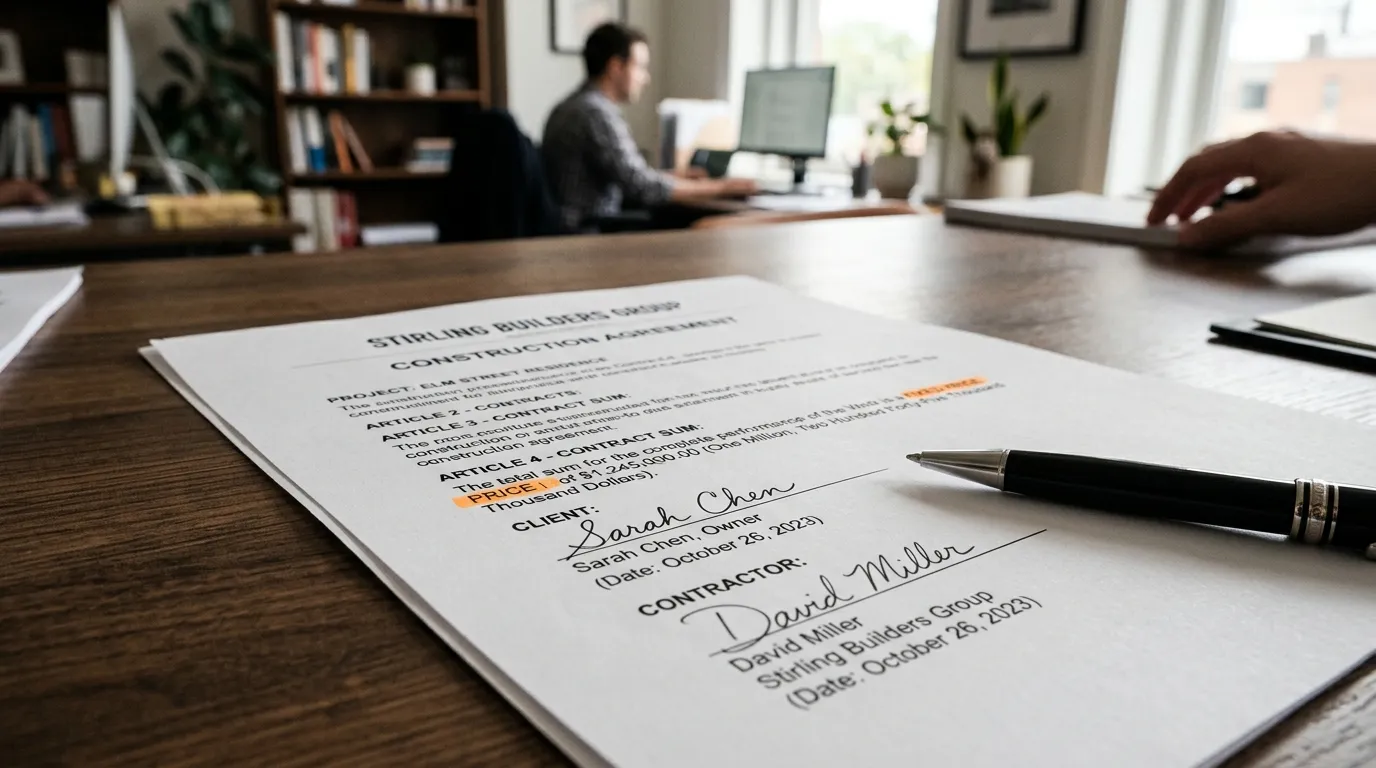 STIRLING BUILDERS GROUP
CONSTRUCTION AGREEMENT
PROJECT: ELM STREET RESIDENCE
ARTICLE 2 - CONTRACTS:
ARTICLE 3 - CONTRACT SUM:
construction agreement.
ARTICLE 4 - CONTRACT SUM:
The total sum for the complete performance of the Work is a FIXED PRICE
PRICE of $1,245,000.00 (One Million, Two Hundred Forty Five Thousand
Thousand Dollars).
CLIENT:
Sarah Chen
Sarah Chen, Owner
(Date: October 26, 2023)
CONTRACTOR:
David Miller
David Miller
Stirling Builders Group
(Date: October 26, 2023)